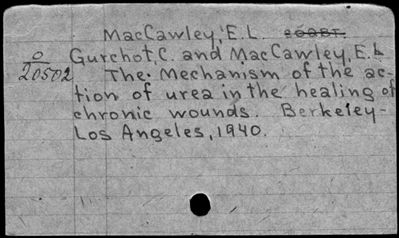 MacCawley, E.L.
O Gurchot, C. and MacCawley, E.L
20502 The Mechanism of the ac-
tion of urea in the healing of
chronic wounds. Berkeley-
Los Angeles, 1940.